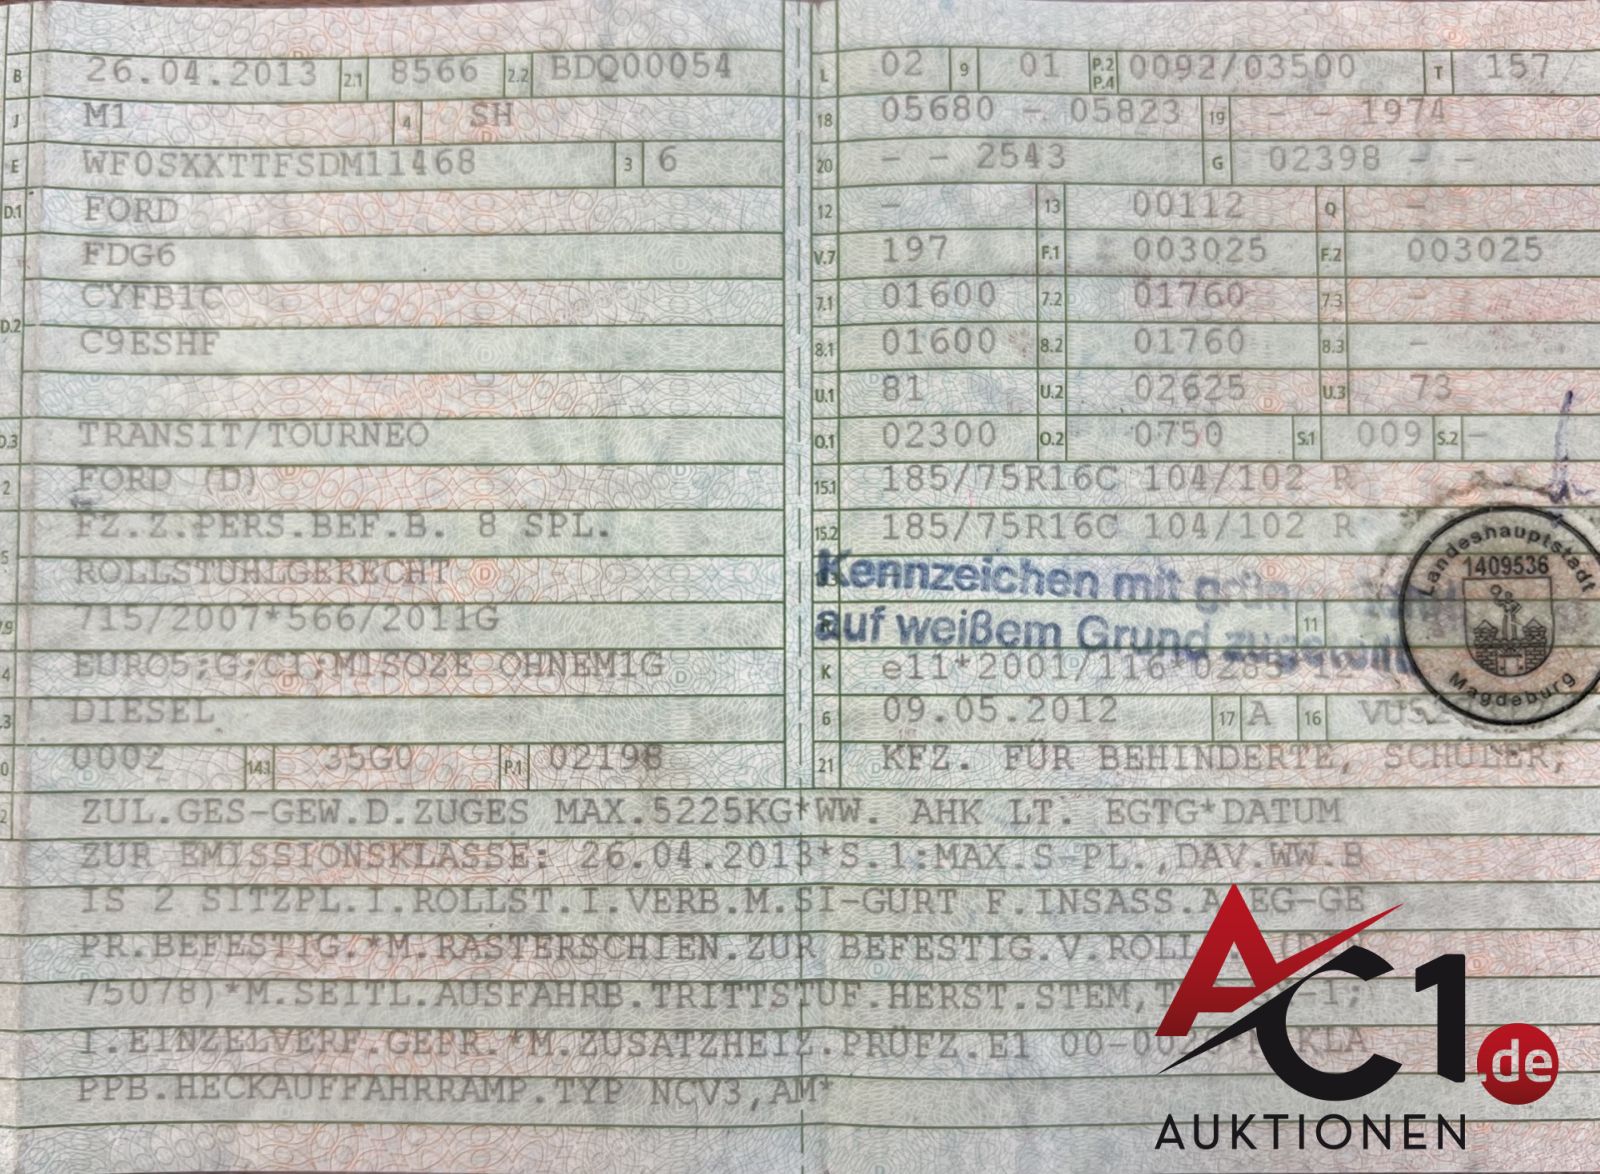 B 26.04.2013 2.1 8566 2.2 BDQ00054
J M1 4 SH
E WF0SXXTTFSDM11468 3 6
D.1 FORD
FDG6
D.2 CYFB1C
C9ESHF
D.3 TRANSIT/TOURNEO
2 FORD (D)
5 FZ.Z.PERS.BEF.B. 8 SPL.
ROLLSTUHLGERECHT
V.9 715/2007*566/2011G
14 EURO5;G;CI;M1SOZE OHNEM1G
P.3 DIESEL
10 0002 14.1 35G0 P.1 02198
L 02 9 01 P.2 P.4 0092/03500 T 157
18 05680 - 05823 19 - - 1974
20 - - 2543 G 02398 - -
12 - 13 00112 Q -
V.7 197 F.1 003025 F.2 003025
7.1 01600 7.2 01760 7.3 -
8.1 01600 8.2 01760 8.3 -
U.1 81 U.2 02625 U.3 73
O.1 02300 O.2 0750 S.1 009 S.2 -
15.1 185/75R16C 104/102 R
15.2 185/75R16C 104/102 R
Kennzeichen mit
auf weißem Grund zugeteilt
11
K e11*2001/116*0285*12
6 09.05.2012 17 A 16
21 KFZ. FÜR BEHINDERTE, SCHÜLER,
Landeshauptstadt
1409536
Magdeburg
22 ZUL.GES-GEW.D.ZUGES MAX.5225KG*WW. AHK LT. EGTG*DATUM
ZUR EMISSIONSKLASSE: 26.04.2013*S.1:MAX.S-PL.,DAV.WW.B
IS 2 SITZPL.I.ROLLST.I.VERB.M.SI-GURT F.INSASS.A.EG-GE
PR.BEFESTIG.*M.RASTERSCHIEN.ZUR BEFESTIG.V.ROLL
75078)*M.SEITL.AUSFAHRB.TRITTSTUF.HERST.STEM,
I.EINZELVERF.GEPR.*M.ZUSATZHEIZ.PRÜFZ.E1 KLA
PPB.HECKAUFFAHRRAMP.TYP NCV3,AM*
AC1.de
AUKTIONEN